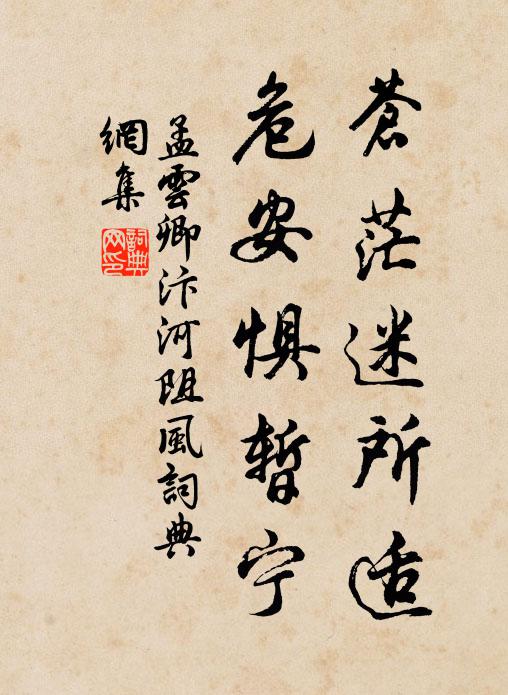 蒼茫迷所适
危安惧暫宁
孟雲卿汴河阻風詞典
網集
詞典
网印